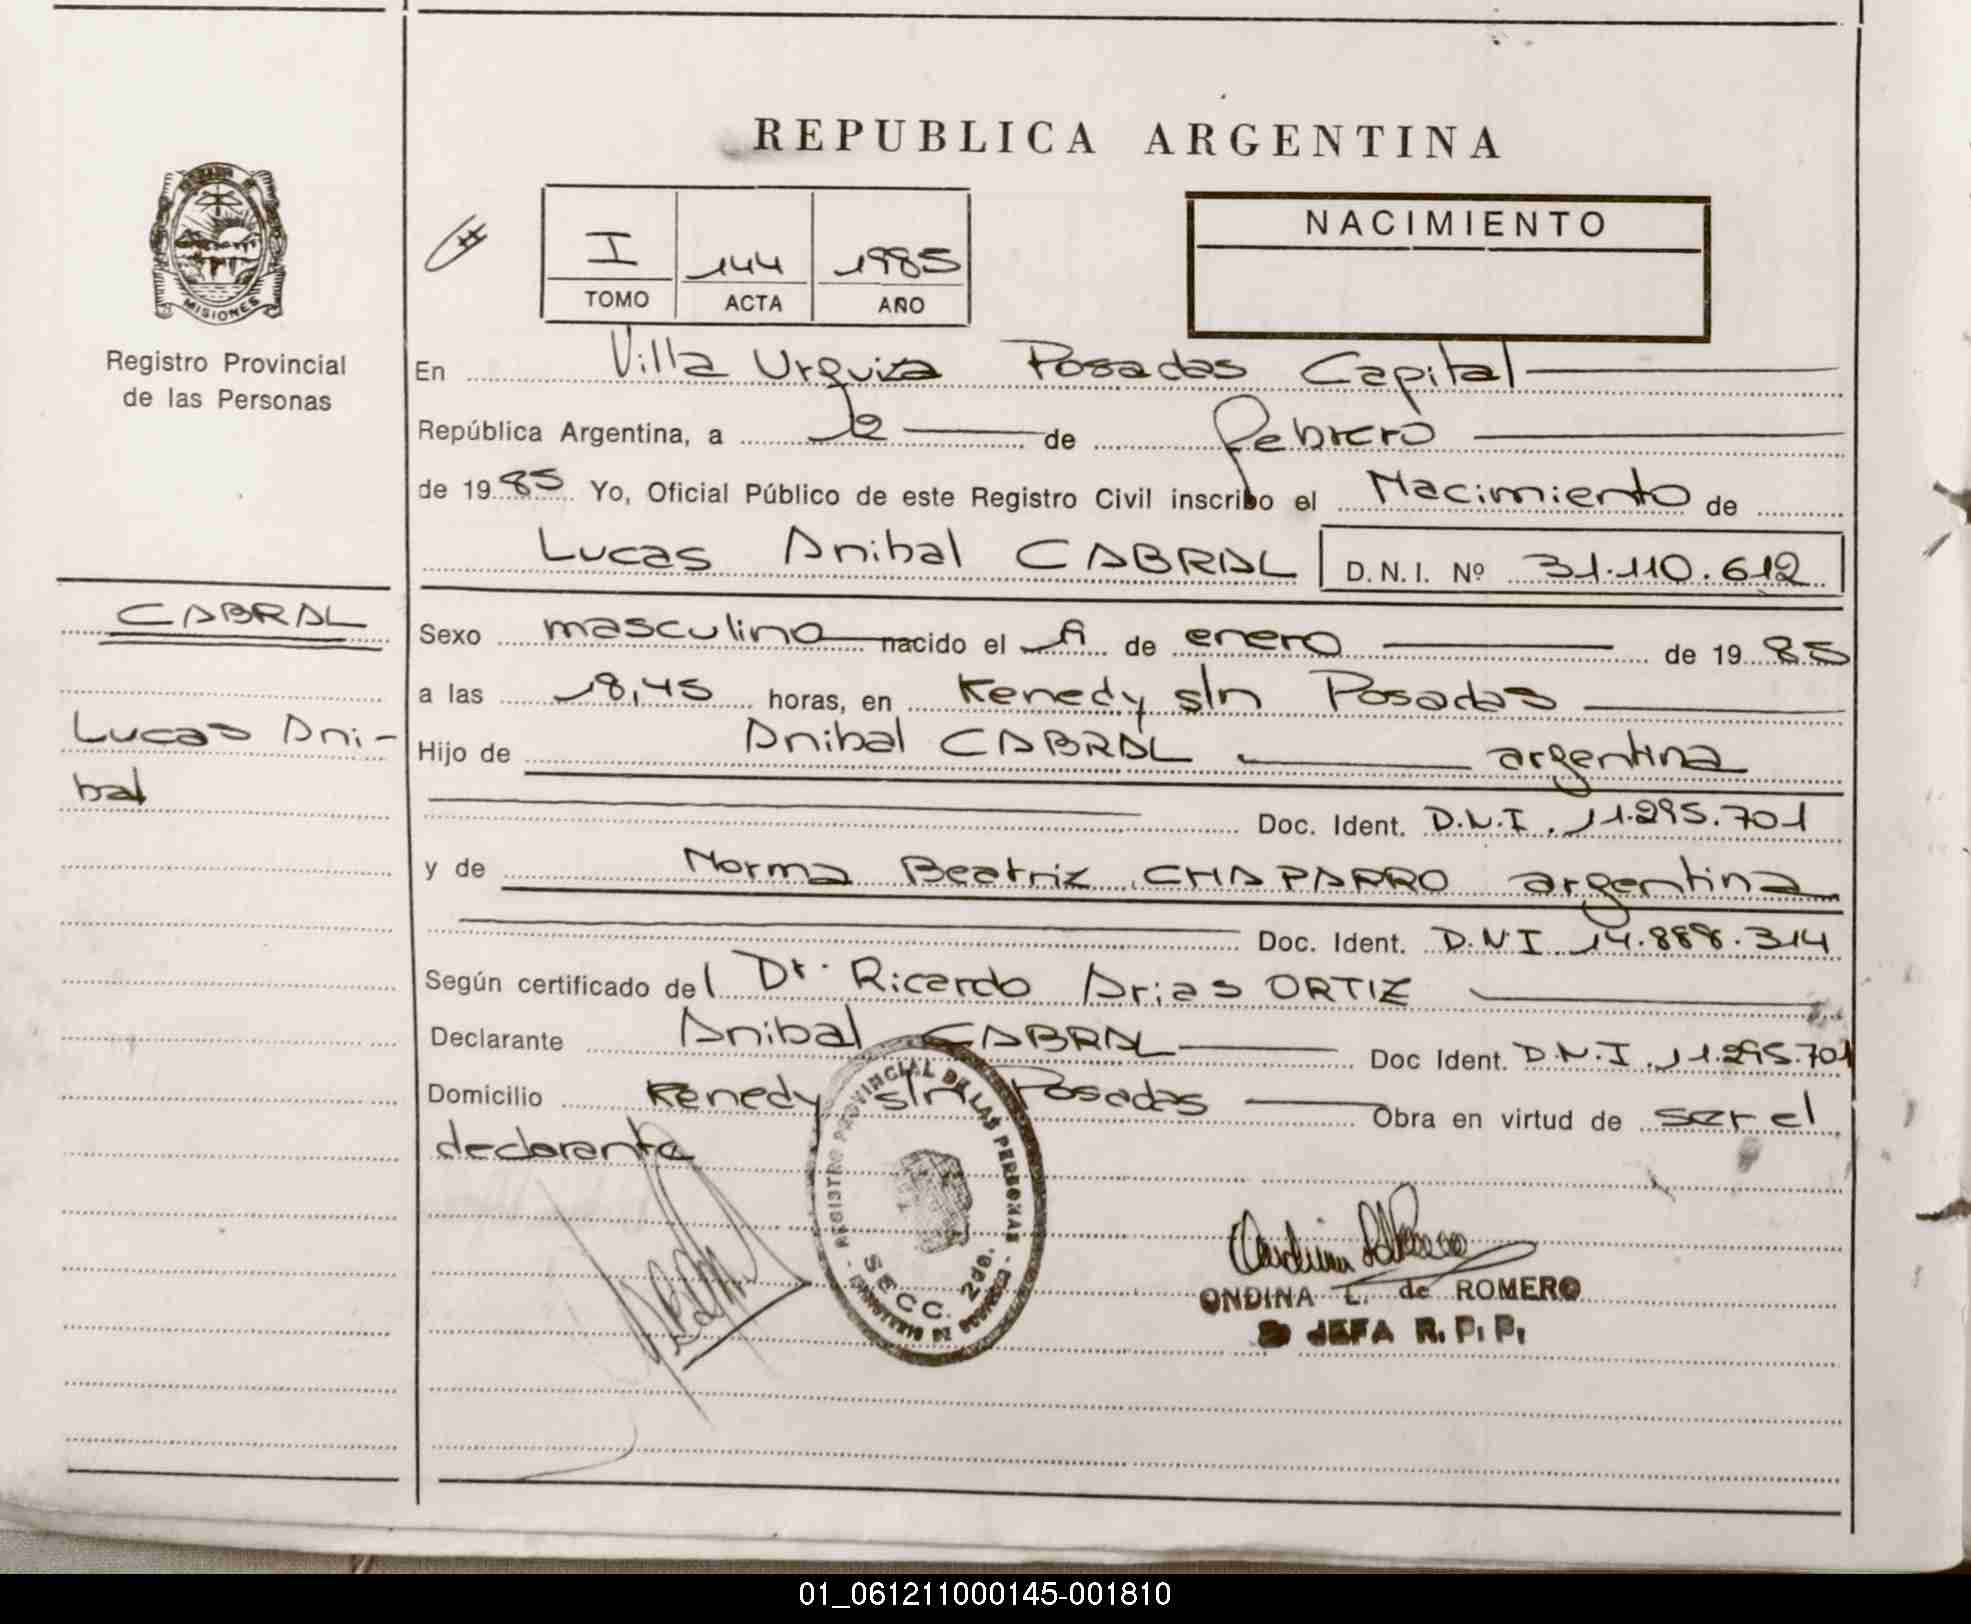 REPUBLICA ARGENTINA
MISIONES
Registro Provincial
de las Personas
I 144 1985
TOMO ACTA AÑO
NACIMIENTO
En Villa Urquiza Posadas Capital
República Argentina, a de febrero
de 19 85 Yo, Oficial Público de este Registro Civil inscribo el Nacimiento de
Lucas Anibal CABRAL D.N.I. Nº 31.110.612
CABRAL
Lucas Ani-
bal
Sexo masculino nacido el de enero de 19 85
a las 18,45 horas, en Kenedy s/n Posadas
Hijo de Anibal CABRAL argentina
Doc. Ident. D.N.I. 11.295.701
y de Norma Beatriz CHAPARRO argentina
Doc. Ident. D.N.I 14.888.314
Según certificado del Dr. Ricardo Arias ORTIZ
Declarante Anibal CABRAL Doc Ident. D.N.I. 11.295.701
Domicilio Kenedy s/n Posadas Obra en virtud de ser el
declarante
REGISTRO PROVINCIAL DE LAS PERSONAS
SECC. 2da.
ONDINA L. de ROMERO
JEFA R. P. P.
01_061211000145-001810